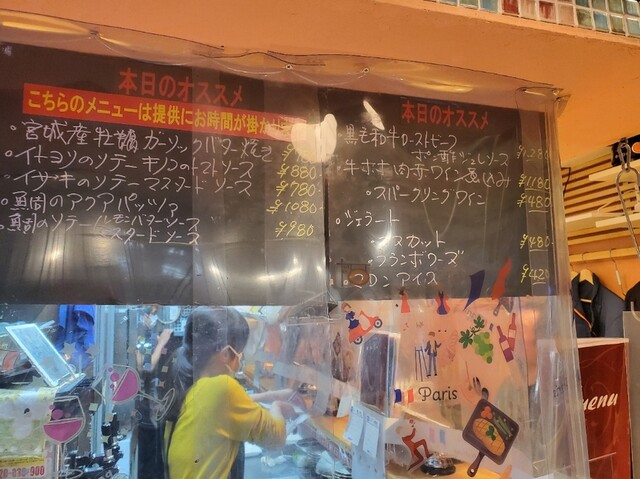 本日のオススメ
こちらのメニューは提供にお時間が掛か
・宮城産牡蠣 ガーリックバター焼き
・イトヨリのソテー キノコのトマトソース ¥880
・イサキのソテー マスタードソース ¥780
・鯛のアクアパッツァ ¥1080
・鯛のソテー レモンバターソース
マスタードソース ¥980
本日のオススメ
黒毛和牛ローストビーフ
ソース ¥1,280
・牛ホホ肉赤ワイン煮込み ¥1180
・スパークリングワイン ¥480
・ジェラート
マスカット ¥480
・フランボワーズ
アイス ¥420
Paris
menu